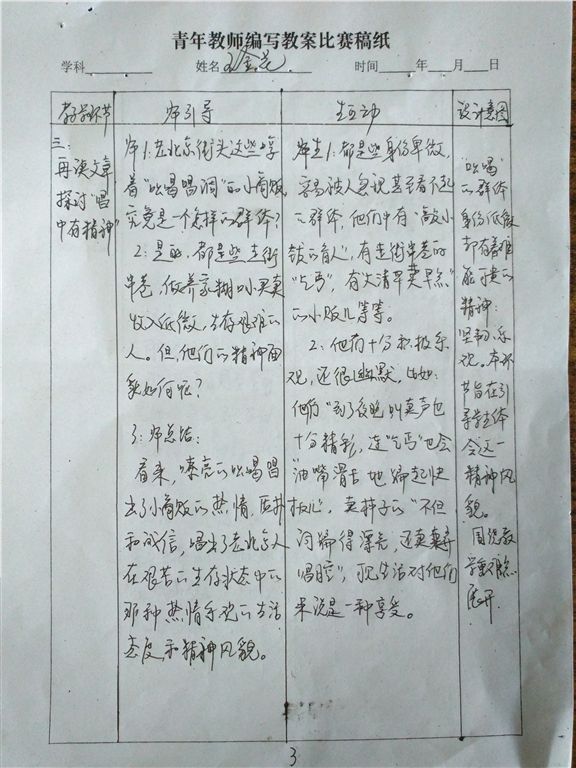 青年教师编写教案比赛稿纸
学科 姓名 时间 年 月 日
教学环节 师引导 生互动 设计意图
三、
再读文章
探讨“唱
中有精神”
师1:老北京街头这些哼
着“吆喝唱调”的小商贩
究竟是一个怎样的群体?
2:是的,都是些走街
串巷,做养家糊口小买卖
收入低微,生存艰难的
人。但,他们的精神面
貌如何呢?
3:师总结:
看来,嘹亮的吆喝唱
出了小商贩的热情
和诚信,喝出了老北京人
在艰苦的生存状态中的
那种热情乐观的生活
态度和精神风貌。
师生1:都是些身份卑微,
容易被人忽视甚至看不起
的群体,他们中有“敲小
钹的盲人”,有走街串巷的
“乞丐”,有大清早卖早点
的小贩儿等等。
2:他们十分积极乐
观,还很幽默。比如:
他们“到了夜晚叫卖声也
十分精彩,连“乞丐”也会
“油嘴滑舌地编起快
板儿”,卖柿子的“不但
词编得漂亮,还卖弄
唱腔”,生活对他们
来说是一种享受。
“吆喝”
的群体
身份低微
却有着难
能可贵的
精神:
坚韧、乐
观。本环
节旨在引
导学生体
会这一
精神风
貌。
围绕教
学重难点
展开
3